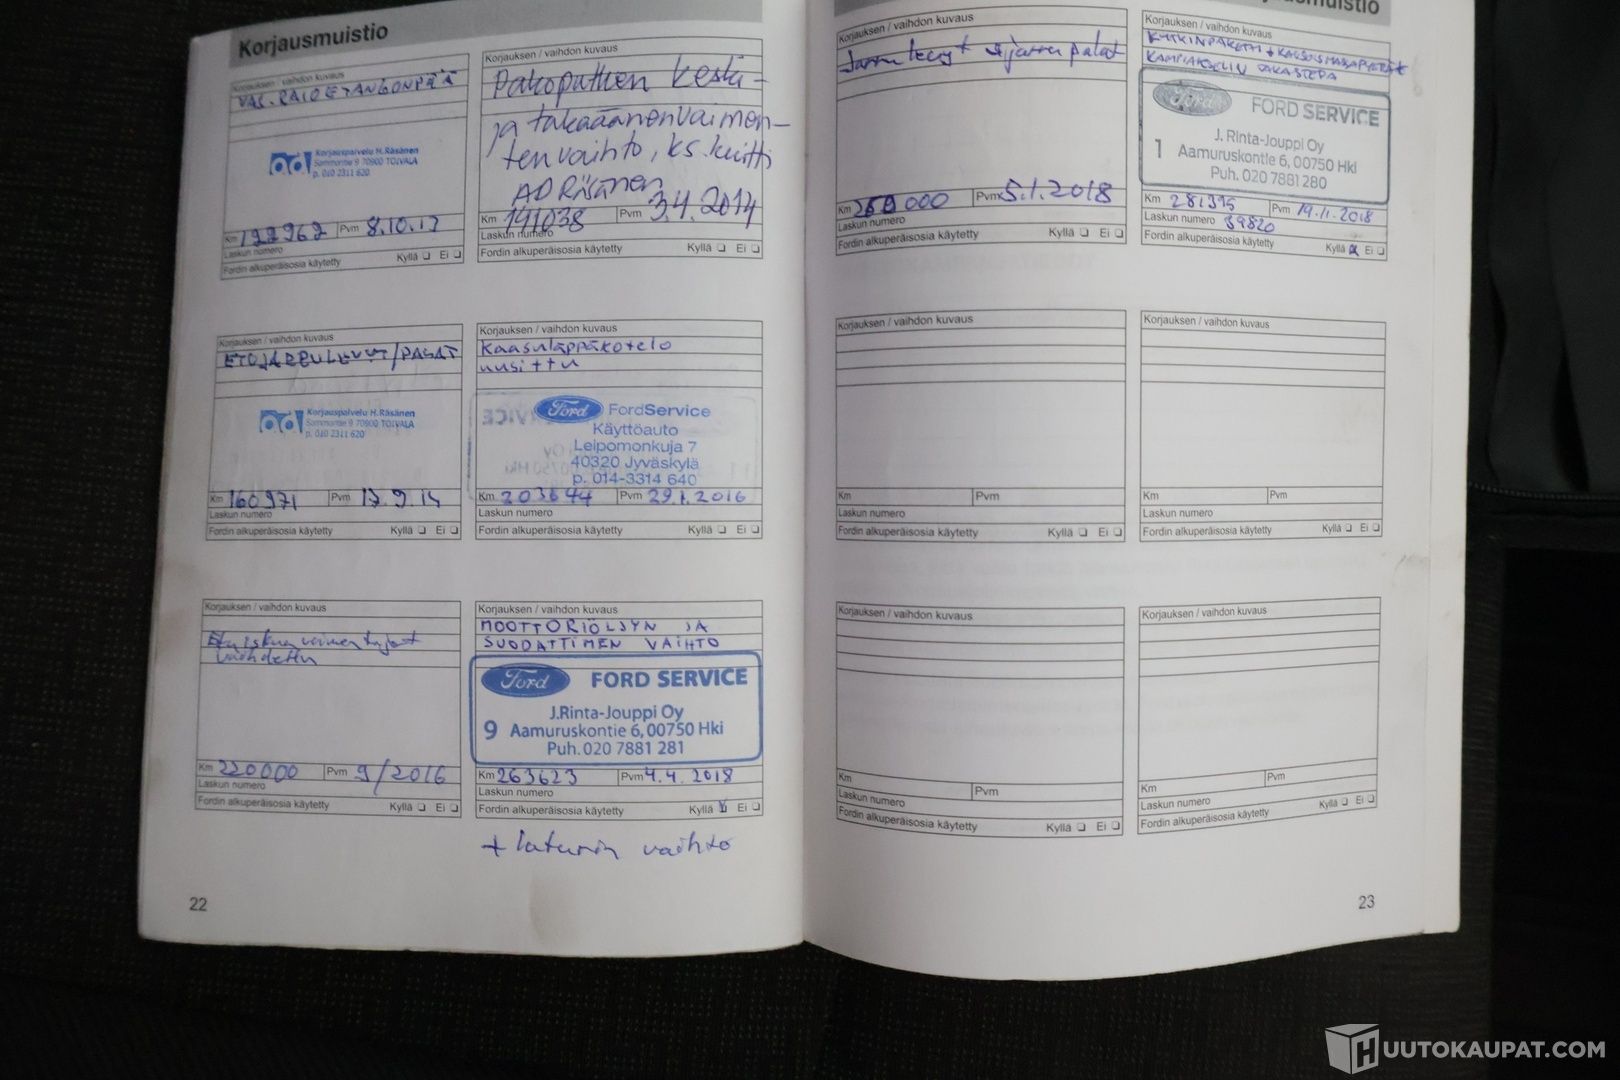 Korjausmuistio
Korjauksen / vaihdon kuvaus
VAS. RAIDETANGONPÄÄ
ad!
Korjauspalvelu H.Räsänen
Sammontie 9 70900 TOIVALA
p. 010 2311 620
Km 122962 Pvm 8.10.13
Laskun numero
Fordin alkuperäisosia käytetty Kyllä ❑ Ei ❑
Korjauksen / vaihdon kuvaus
Pakoputken keski-
ja takaäänenvaimen-
ten vaihto, ks. kuitti
AD Räsänen
Km 141038 Pvm 3.4.2014
Laskun numero
Fordin alkuperäisosia käytetty Kyllä ❑ Ei ❑
Korjauksen / vaihdon kuvaus
ETUJARRULEVYT/PALAT
ad!
Korjauspalvelu H.Räsänen
Sammontie 9 70900 TOIVALA
p. 010 2311 620
Km 160971 Pvm 17.9.14
Laskun numero
Fordin alkuperäisosia käytetty Kyllä ❑ Ei ❑
Korjauksen / vaihdon kuvaus
Kaasuläppäkotelo
uusittu
Ford FordService
Käyttöauto
Leipomonkuja 7
40320 Jyväskylä
p. 014-3314 640
Km 203644 Pvm 29.1.2016
Laskun numero
Fordin alkuperäisosia käytetty Kyllä ❑ Ei ❑
Korjauksen / vaihdon kuvaus
Etuiskunvaimentajat
vaihdettu
Km 220000 Pvm 9/2016
Laskun numero
Fordin alkuperäisosia käytetty Kyllä ❑ Ei ❑
Korjauksen / vaihdon kuvaus
MOOTTORIÖLJYN JA
SUODATTIMEN VAIHTO
Ford FORD SERVICE
J.Rinta-Jouppi Oy
9 Aamuruskontie 6, 00750 Hki
Puh. 020 7881 281
Km 263623 Pvm 4.4.2018
Laskun numero
Fordin alkuperäisosia käytetty Kyllä ❑ Ei ❑
+ laturin vaihto
22
Korjauksen / vaihdon kuvaus
Jarrulevyt + jarrupalat
Km 000 Pvm 5.1.2018
Laskun numero
Fordin alkuperäisosia käytetty Kyllä ❑ Ei ❑
Korjauksen / vaihdon kuvaus
KYTKINPAKETTI + KAKSOISMASSAPYÖRÄ +
KAMPIAKSELIN TAKASTEFA
Ford FORD SERVICE
J. Rinta-Jouppi Oy
1 Aamuruskontie 6, 00750 Hki
Puh. 020 7881 280
Km 281395 Pvm 19.11.2018
Laskun numero 89820
Fordin alkuperäisosia käytetty Kyllä ❑ Ei ❑
Korjauksen / vaihdon kuvaus
Km Pvm
Laskun numero
Fordin alkuperäisosia käytetty Kyllä ❑ Ei ❑
Korjauksen / vaihdon kuvaus
Km Pvm
Laskun numero
Fordin alkuperäisosia käytetty Kyllä ❑ Ei ❑
Korjauksen / vaihdon kuvaus
Km Pvm
Laskun numero
Fordin alkuperäisosia käytetty Kyllä ❑ Ei ❑
Korjauksen / vaihdon kuvaus
Km Pvm
Laskun numero
Fordin alkuperäisosia käytetty Kyllä ❑ Ei ❑
23
HUUTOKAUPAT.COM